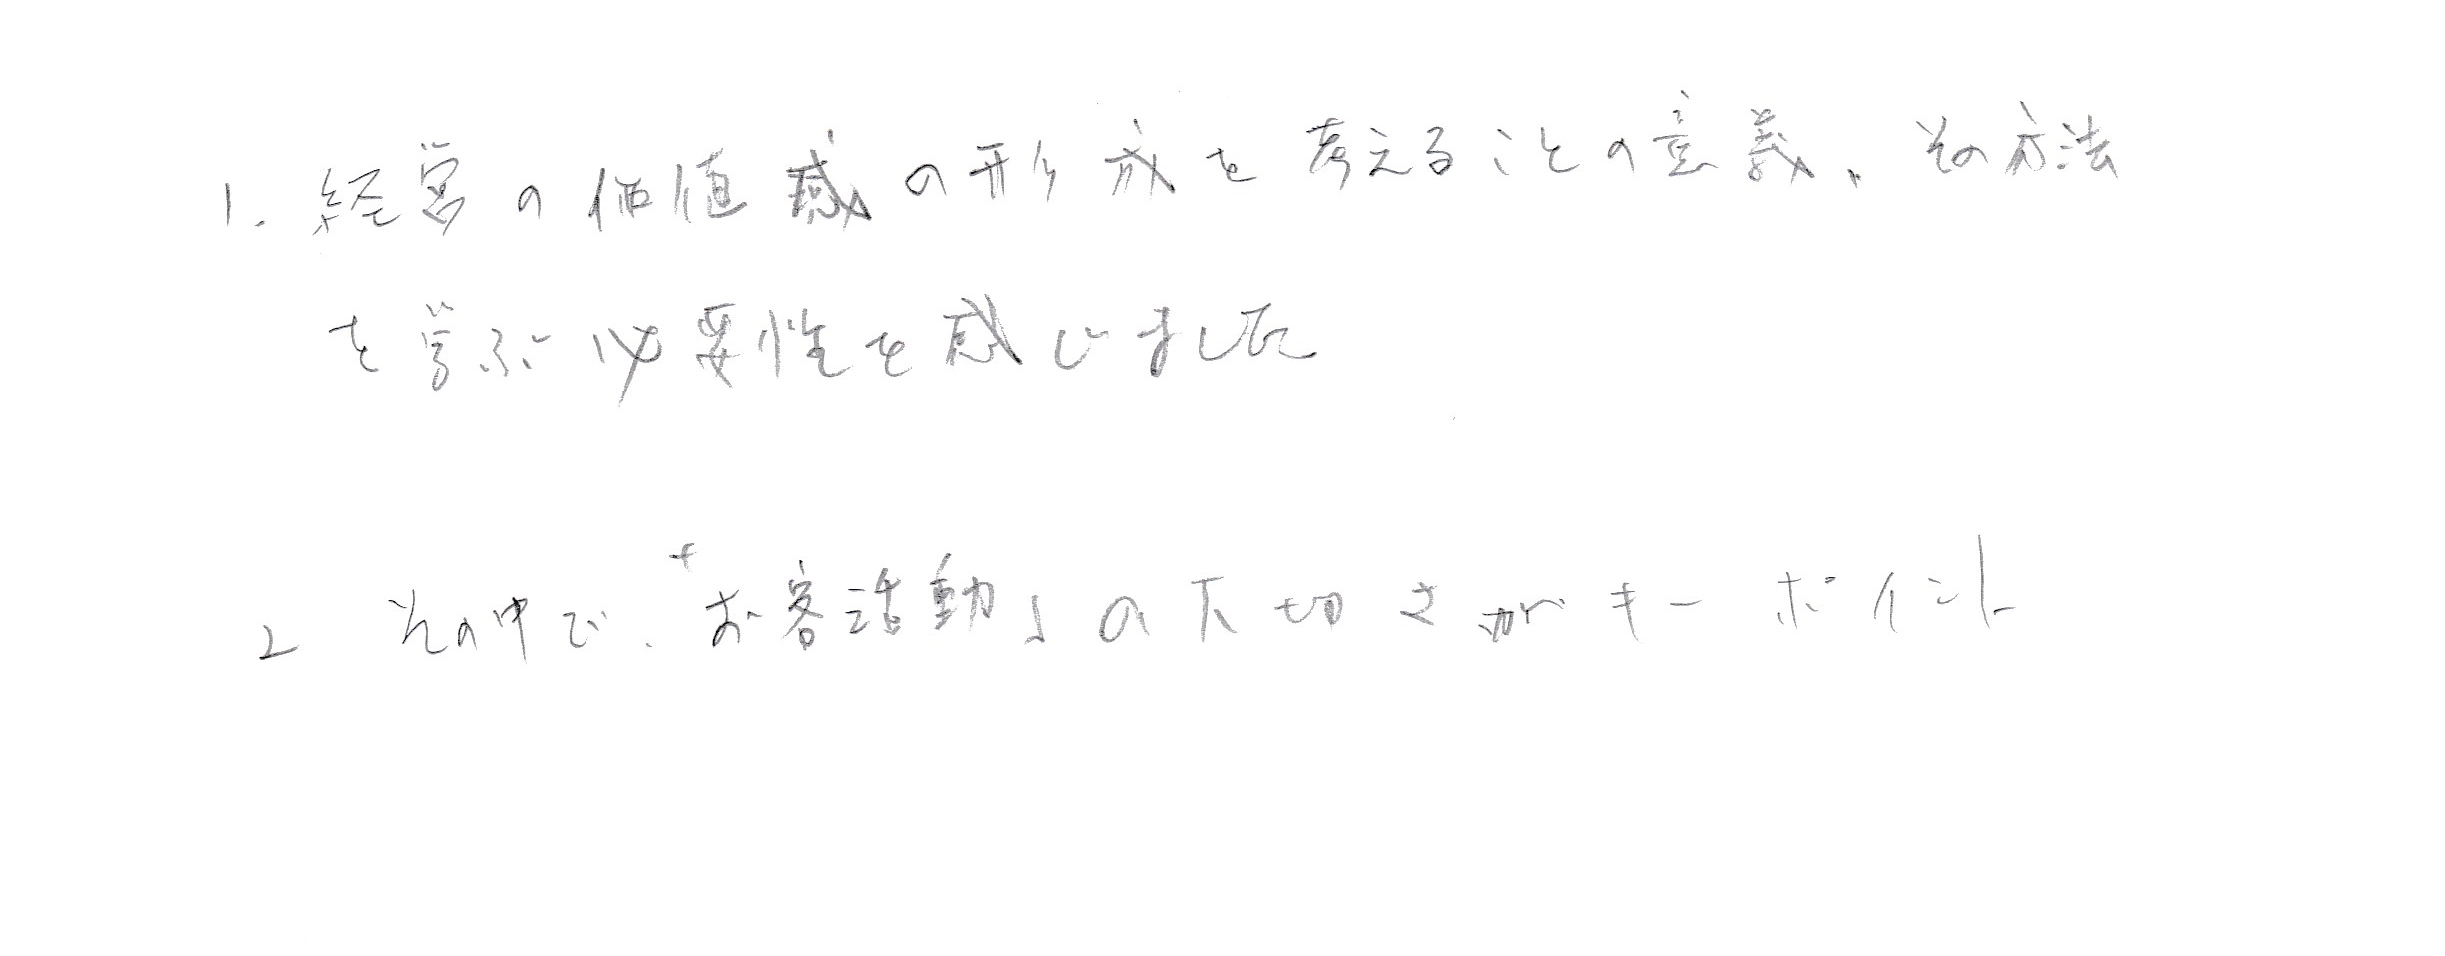 1. 経営の価値感の形成を考えることの意義、その方法
を学ぶ必要性を感じました
2 その中で、「お客活動」の大切さがキーポイント